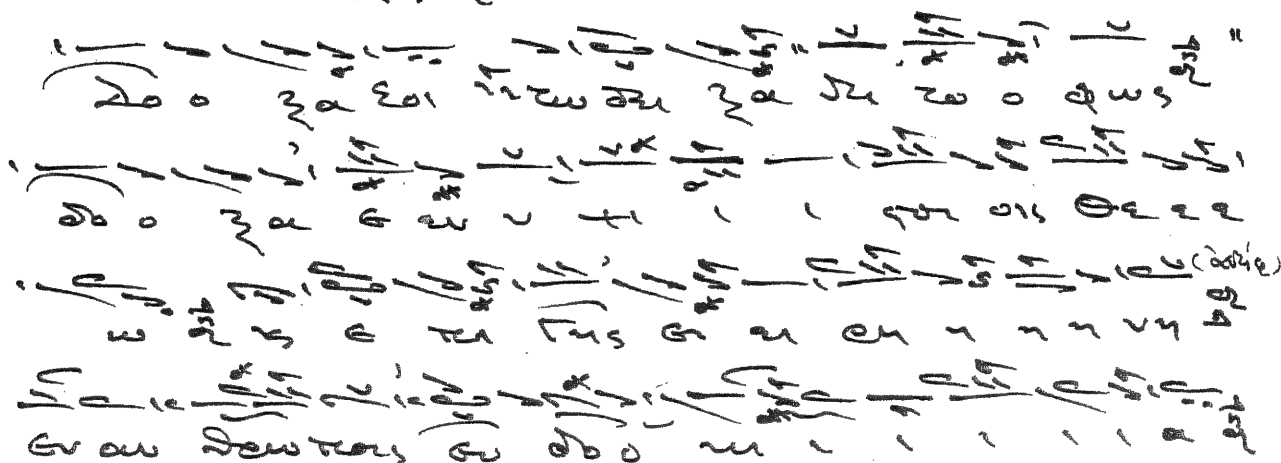 Δο ο ξα Σοι τω δει ξα ντι το ο φως
δο ο ξα ε εν υ ψι ι ι στοι οις Θε ε ε
ω ϗ ε πι γης ει ει ρη η η η νη
εν αν θρω ποις ευ δο ο κι ι ι ι ι ι α